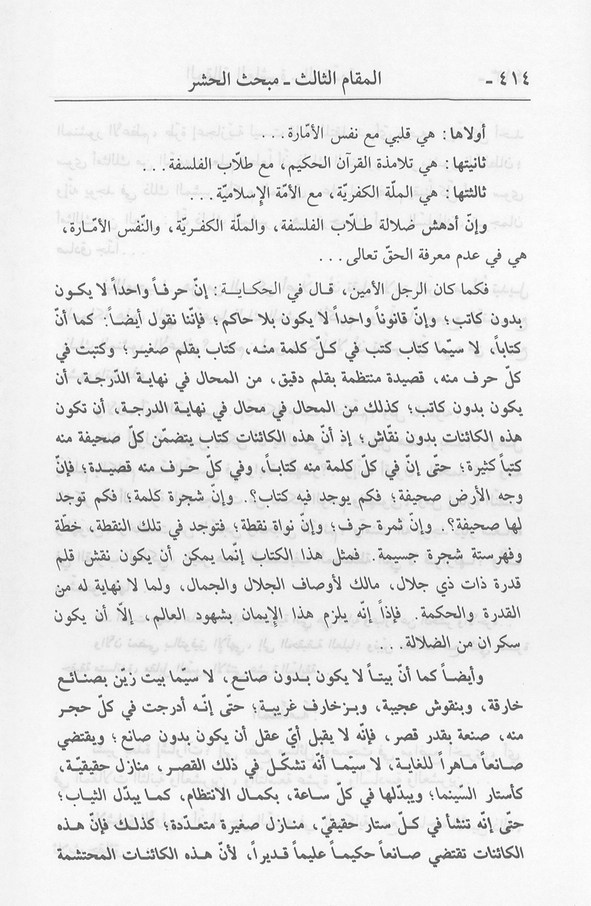 ٤١٤ - المقام الثالث ـ مبحث الحشر
أولاها: هي قلبي مع نفس الأمّارة...
ثانيتها: هي تلامذة القرآن الحكيم، مع طلّاب الفلسفة...
ثالثتها: هي الملّة الكفريّة، مع الأمّة الإسلاميّة...
وإنّ أدهش ضلالة طلّاب الفلسفة، والملّة الكفريّة، والنّفس الأمّارة،
هي في عدم معرفة الحقّ تعالى...
فكما كان الرجل الأمين، قال في الحكاية: إنّ حرفاً واحداً لا يكون
بدون كاتب؛ وإنّ قانوناً واحداً لا يكون بلا حاكم؛ فإنّنا نقول أيضاً: كما أنّ
كتاباً، لا سيّما كتاب كتب في كلّ كلمة منه، كتاب بقلم صغير؛ وكتبت في
كلّ حرف منه، قصيدة منتظمة بقلم دقيق، من المحال في نهاية الدّرجة، أن
يكون بدون كاتب؛ كذلك من المحال في محال في نهاية الدرجة، أن تكون
هذه الكائنات بدون نقّاش؛ إذ أنّ هذه الكائنات كتاب يتضمّن كلّ صحيفة منه
كتباً كثيرة؛ حتّى إنّ في كلّ كلمة منه كتاباً، وفي كلّ حرف منه قصيدة؛ فإنّ
وجه الأرض صحيفة؛ فكم يوجد فيه كتاب؟. وإنّ شجرة كلمة؛ فكم توجد
لها صحيفة؟. وإنّ ثمرة حرف؛ وإنّ نواة نقطة؛ فتوجد في تلك النقطة، خطّة
وفهرستة شجرة جسيمة. فمثل هذا الكتاب إنّما يمكن أن يكون نقش قلم
قدرة ذات ذي جلال، مالك لأوصاف الجلال والجمال، ولما لا نهاية له من
القدرة والحكمة. فإذاً إنّه يلزم هذا الإيمان بشهود العالم، إلّا أن يكون
سكران من الضلالة...
وأيضاً كما أنّ بيتاً لا يكون بدون صانع، لا سيّما بيت زيّن بصنائع
خارقة، وبنقوش عجيبة، وبزخارف غريبة؛ حتّى إنّه أدرجت في كلّ حجر
منه، صنعة بقدر قصر، فإنّه لا يقبل أيّ عقل أن يكون بدون صانع؛ ويقتضي
صانعاً ماهراً للغاية، لا سيّما أنّه تشكّل في ذلك القصر، منازل حقيقيّة،
كأستار السّينما؛ ويبدّلها في كلّ ساعة، بكمال الانتظام، كما يبدّل الثياب؛
حتّى إنّه تنشأ في كلّ ستار حقيقيّ، منازل صغيرة متعدّدة؛ كذلك فإنّ هذه
الكائنات تقتضي صانعاً حكيماً عليماً قديراً، لأنّ هذه الكائنات المحتشمة